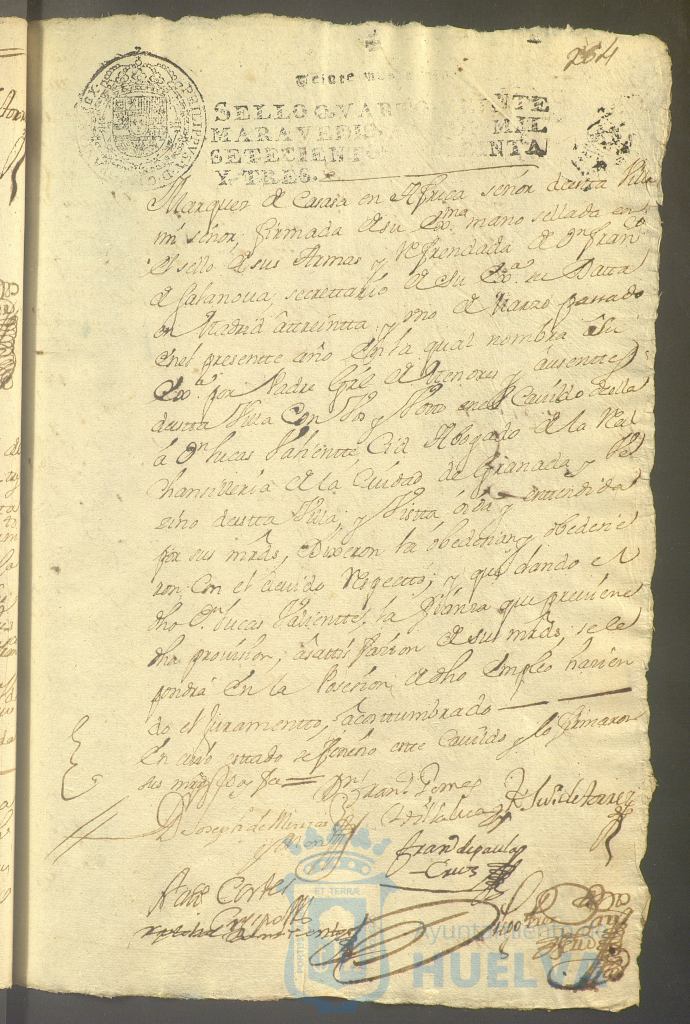 264
Veinte mar
SELLO QVARTO, VEINTE
MARAVEDIS, MIL
SETECIENTOS ENTA
Y TRES.
PHILIPPVS V D G
Marques de Casasa en Africa señor destta Villa
mi señor, firmada de su Exma mano sellada en
el sello de sus Armas y Refrendada de Dn Franco
de Casanova, secrettario de su Exa su Datta
en Madrid a ttreintta y uno de Marzo passado
en el presentte año en la qual nombra su
Exa por Padre Gral de Menores y ausenttes
destta Villa Con Voz y Votto en el Cavildo della
a Dn Lucas Valientte Cid Abogado de la Real
Chansilleria de la Ciudad de Granada y Ve
zino destta Villa; y Vistta oida y entendida
por sus mrds, Dixeron la obedecian y obedecie
ron Con el devido Respecto; y que dando el
dho Dn Lucas Valientte, la fianza que previene
dha provision, a sattisfazion de sus mrds, se le
pondrá en la Posesion de dho Empleo hazien
do el Juramentto, acosttumbrado
En cuio esttado se feneció estte Cavildo y lo firmaron
sus mrds doy fee =
Dn Joseph de Menzas
Fran Gomes
Villalua
fran de paula
Cruz
Cortes
AYUNTAMIENTO DE
HUELVA
ET TERRÆ
PORTUS